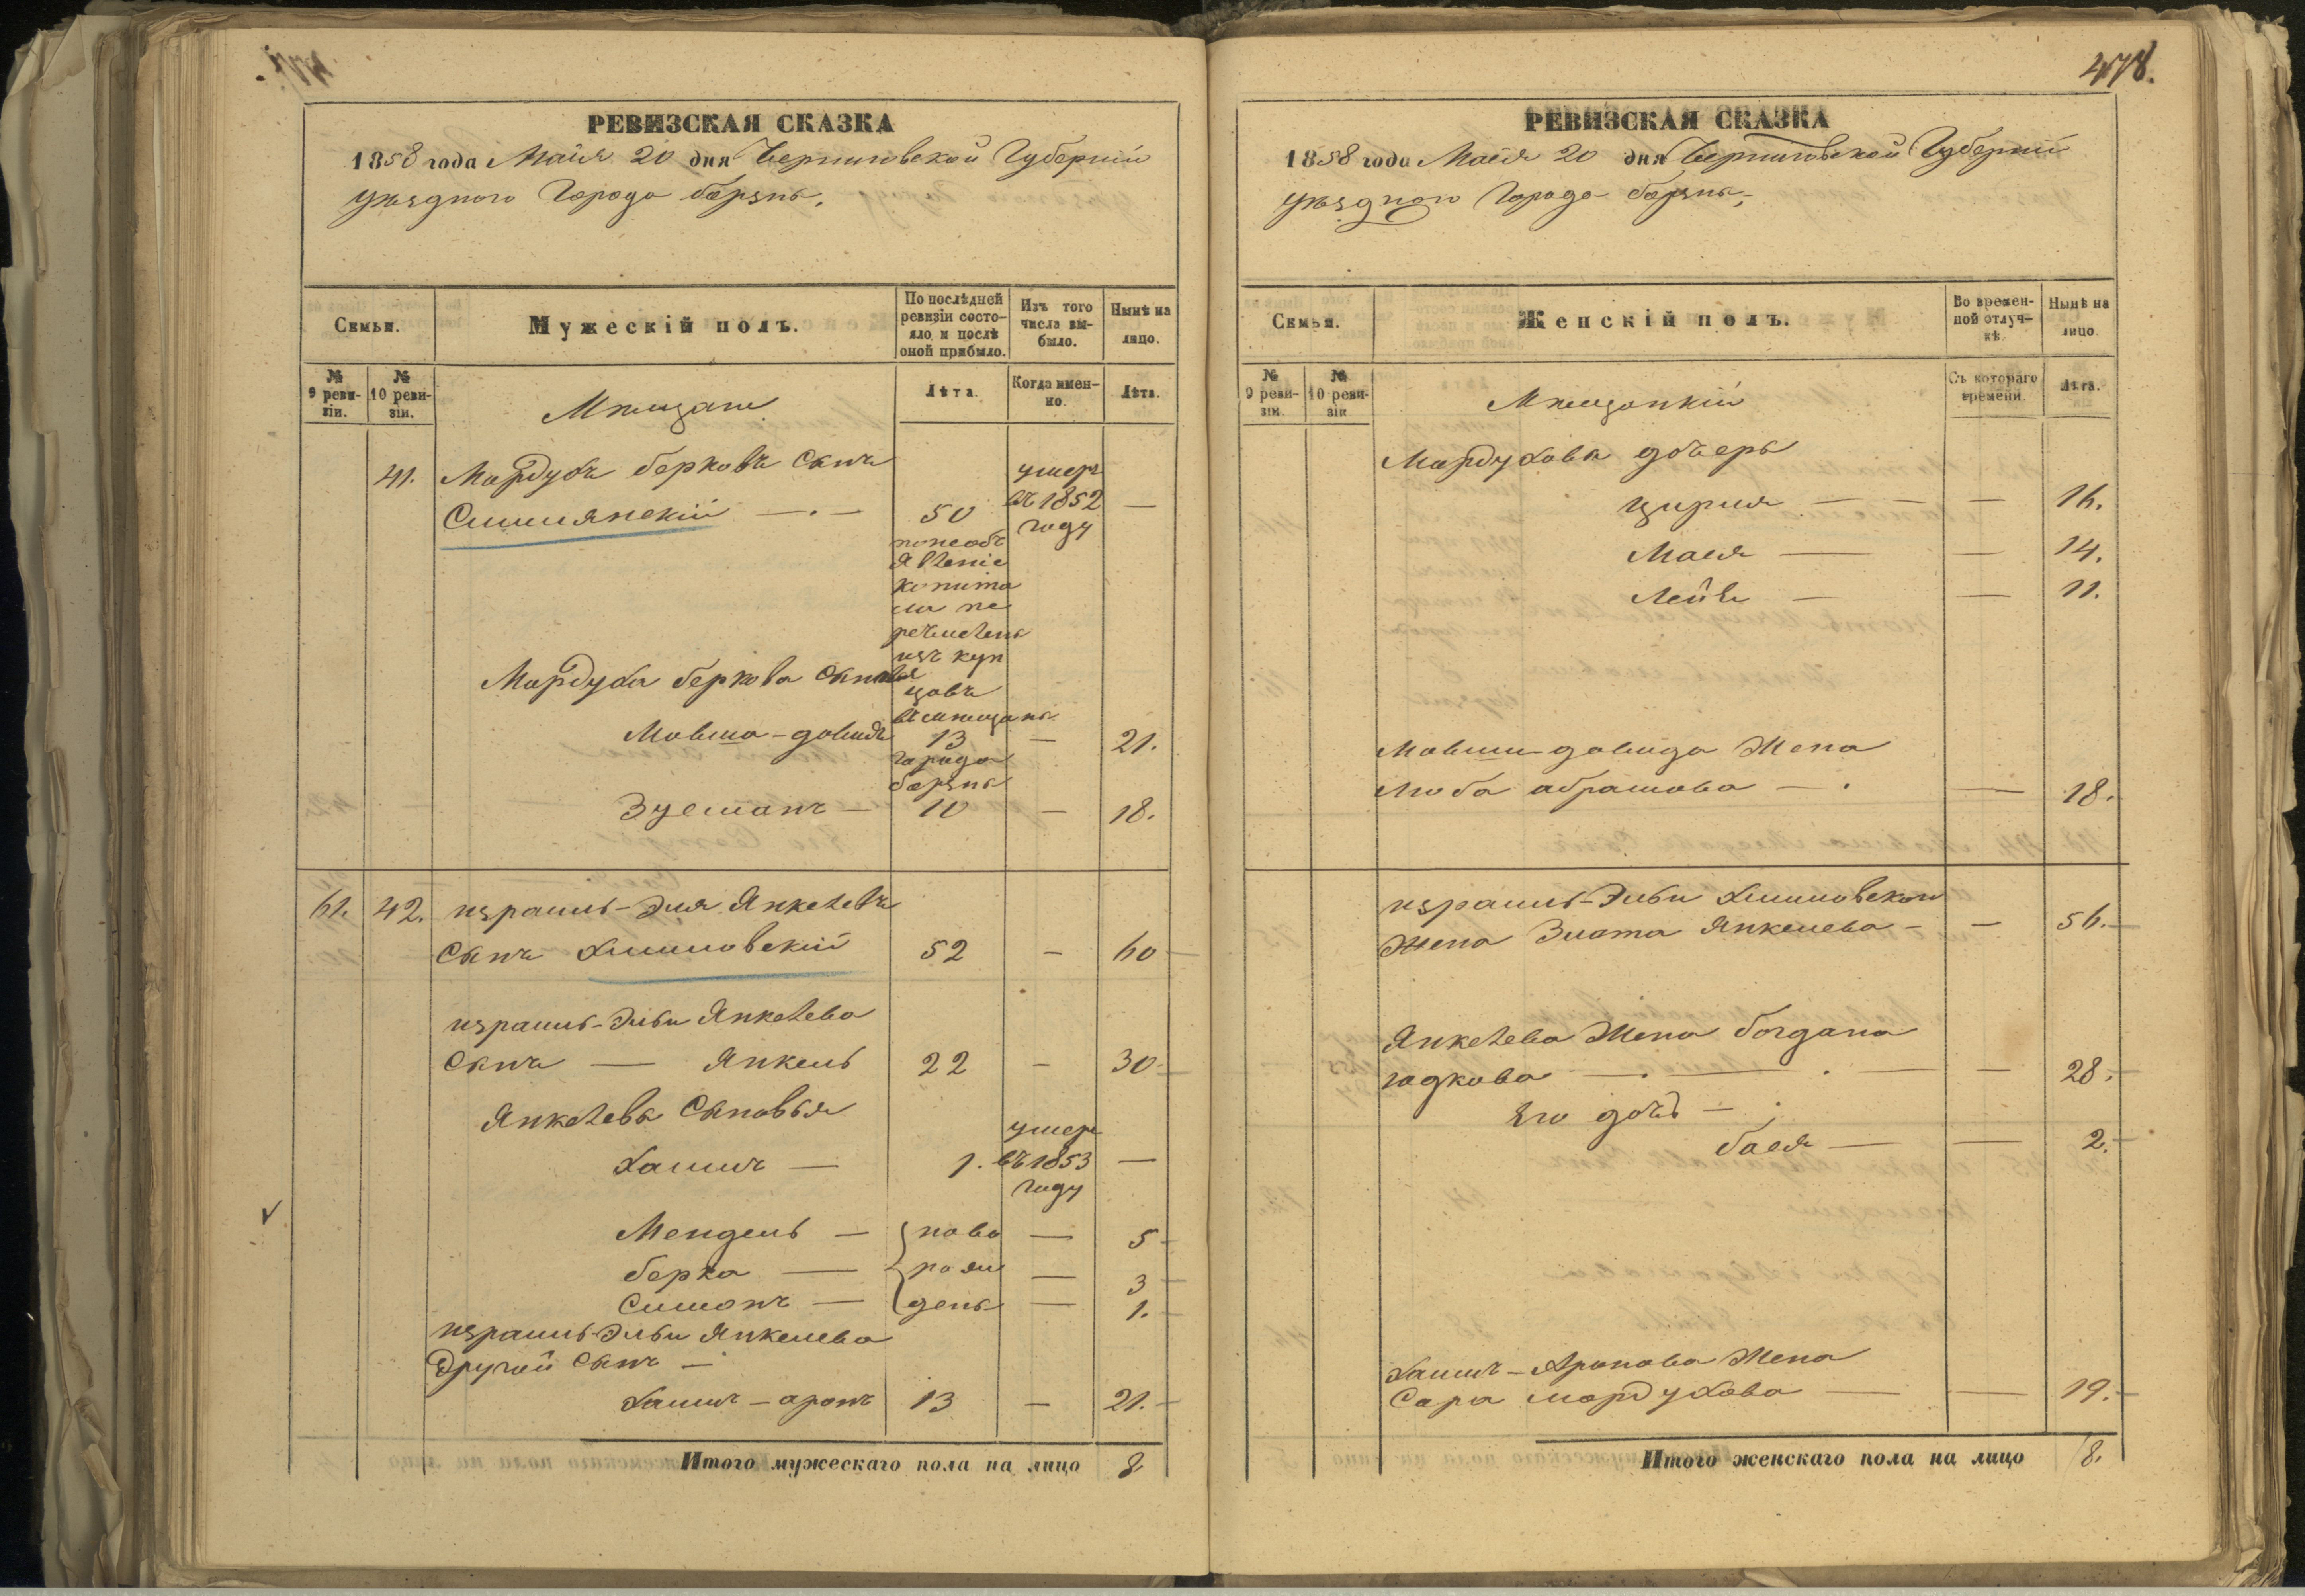 478.
РЕВИЗСКАЯ СКАЗКА
1858 года Маія 20 дня Черниговской Губерніи
уѣзднаго Города борзны.
Семьи.
Мужескій полъ.
По послѣдней ревизіи состояло и послѣ оной прибыло.
Изъ того числа выбыло.
Нынѣ на лицо.
№ 9 ревизіи.
№ 10 ревизіи.
Лѣта.
Когда именно.
Лѣта.
Мѣщане
41. Мордухъ берковъ Сынъ
Симянскій — . — 50 умеръ въ 1852 году —
понеобъ
явленіе
капита
ла пе
речислены
изъ куп
цовъ
въ мѣщаны
города
борзны
Мордуха беркова Сыновья
Мовша-довидъ 13 — 21.
Зусманъ — 10 — 18.
61. 42. израиль-Эля Янкелевъ
Сынъ Химовскій 52 — 60
израиль-Эльи Янкелева
Сынъ — Янкель 22 — 30
Янкелевы Сыновья
Хаимъ — 1. умеръ въ 1853 году —
Мендель — ново — 5
берка — рож — 3
Симонъ — дены — 1.
израиль-Эльи Янкелева
Другой Сынъ —
Хаимъ-аронъ 13 — 21.
Итого мужескаго пола на лицо 8.
РЕВИЗСКАЯ СКАЗКА
1858 года Маія 20 дня Черниговской Губерніи
уѣзднаго Города борзны.
Семьи.
Женскій полъ.
Во временной отлучкѣ.
Нынѣ на лицо.
№ 9 ревизіи.
№ 10 ревизіи
Съ котораго времени.
Лѣта.
Мордухова дочеры
Цирля — — — 16.
Мася — — 14.
Лейя — — 11.
Мовши-довида Жена
Люба абрамова — . — 18.
израиль-Эльи Химовского
Жена Злата Янкелева — — 56.
Янкелева Жена богдана
юдкова — . — . — — 28.
Его дочь — .
бася — — 2.
Хаимъ-Аронова Жена
Сара мордухова — — 19.
Итого женскаго пола на лицо 8.